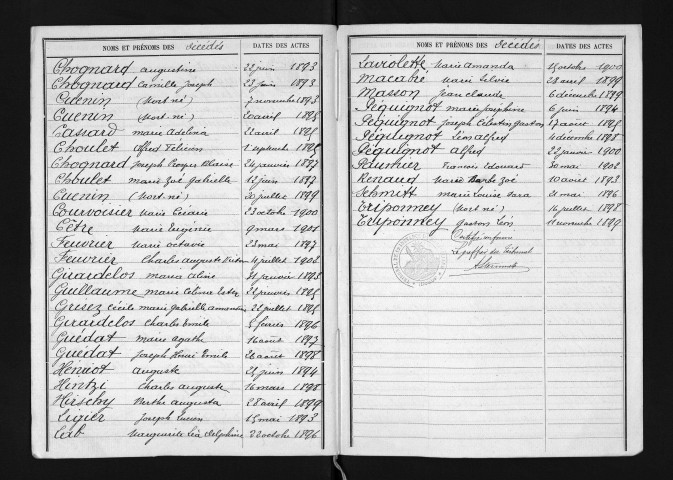 NOMS ET PRÉNOMS DES Décédés DATES DES ACTES
Chognard Augustine 22 juin 1893
Chognard Camille Joseph 23 juin 1893
Cuenin (Mort né) 7 novembre 1893
Cuenin (Mort né) 20 avril 1895
Cassard Marie 22 avril 1895
Choulet Alfred Félicien 2 septembre 1895
Chognard Joseph 24 janvier 1897
Choulet Marie Zoé Gabrielle 12 juin 1897
Cuenin (Mort né) 20 juillet 1899
Courvoisier Marie 23 octobre 1900
Cêtre Marie Eugénie 9 mars 1901
Feuvrier Marie Octavie 23 mai 1897
Feuvrier Charles Auguste 4 juillet 1902
Girardelos Marie Aline 31 janvier 1893
Guillaume Marie Ester 22 janvier 1895
Grisez Cécile Marie Gabrielle 22 juillet 1895
Girardclos Charles Emile 5 février 1896
Guédat Marie Agathe 16 août 1897
Guédat Joseph Henri Emile 26 août 1898
Hénuot Auguste 21 juin 1894
Hintzi Charles Auguste 16 mars 1898
Hirschy Berthe Augusta 28 avril 1899
Ligier Joseph Lucien 15 mai 1893
Lab Marguerite Léa Delphine 22 octobre 1896
NOMS ET PRÉNOMS DES Décédés DATES DES ACTES
Laviolette Marie Amanda 15 octobre 1900
Macabré Marie Silvie 28 avril 1899
Masson Jean Claude 6 décembre 1899
Péquignot Marie Joséphine 6 juin 1894
Péquignot Joseph Célestin Gaston 17 août 1895
Péquignot Léon Alfred 4 décembre 1898
Péquignot Alfred 22 janvier 1900
Paumier François Edouard 30 mai 1902
Renaud Marie Barbe Zoé 10 août 1893
Schmitt Marie Louise Sara 21 mai 1896
Triponney (Mort né) 16 juillet 1898
Triponney Gaston Léon 11 novembre 1899
Certifié conforme
Le greffier du Tribunal